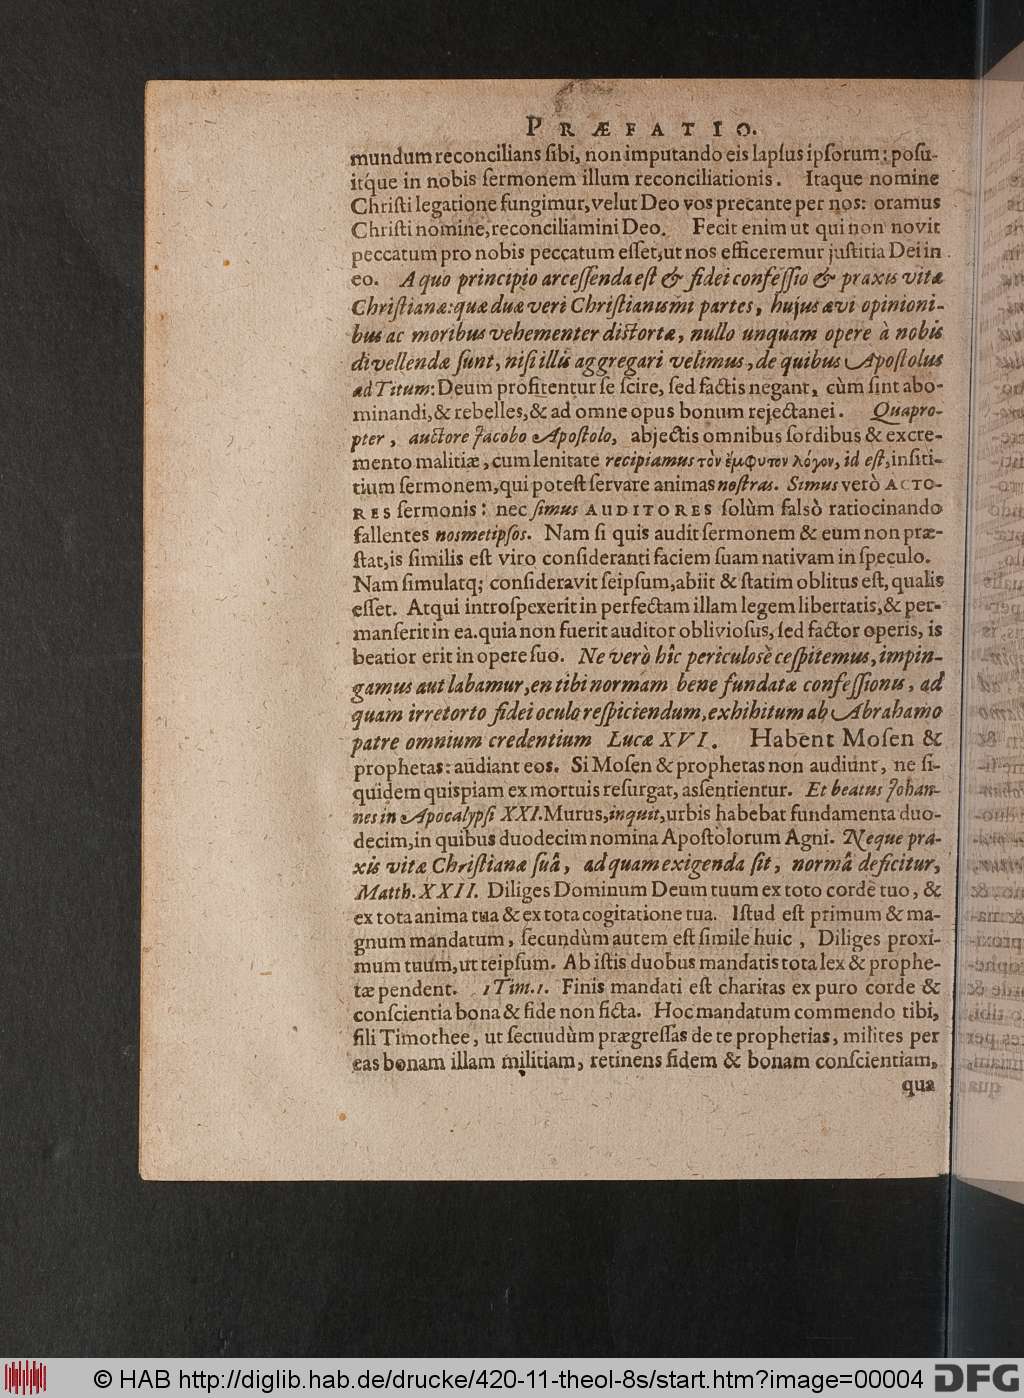 PRÆFATIO.
mundum reconcilians ſibi, non imputando eis lapſus ipſorum; poſu-
itq́ue in nobis ſermonem illum reconciliationis. Itaque nomine
Chriſti legatione fungimur, velut Deo vos precante per nos: oramus
Chriſti nomine, reconciliamini Deo. Fecit enim ut qui non novit
peccatum pro nobis peccatum eſſet, ut nos efficeremur juſtitia Dei in
eo. A quo principio arceſſenda eſt & fidei confeſſio & praxis vitæ
Chriſtianæ: quæ duæ veri Chriſtianiſmi partes, hujus ævi opinioni-
bus ac moribus vehementer diſtortæ, nullo unquam opere à nobis
divellendæ ſunt, niſi illis aggregari velimus, de quibus Apoſtolus
ad Titum: Deum profitentur ſe ſcire, ſed factis negant, cùm ſint abo-
minandi, & rebelles, & ad omne opus bonum rejectanei. Quapro-
pter, auctore Jacobo Apoſtolo, abjectis omnibus ſordibus & excre-
mento malitiæ, cum lenitate recipiamus τὸν ἔμφυτον λόγον, id eſt, inſiti-
tium ſermonem, qui poteſt ſervare animas noſtras. Simus verò ACTO-
RES ſermonis: nec ſimus AUDITORES ſolùm falsò ratiocinando
fallentes noſmetipſos. Nam ſi quis audit ſermonem & eum non præ-
ſtat, is ſimilis eſt viro conſideranti faciem ſuam nativam in ſpeculo.
Nam ſimulatq; conſideravit ſeipſum, abiit & ſtatim oblitus eſt, qualis
eſſet. Atqui introſpexerit in perfectam illam legem libertatis, & per-
manſerit in ea. quia non fuerit auditor oblivioſus, ſed factor operis, is
beatior erit in opere ſuo. Ne verò hîc periculosè ceſpitemus, impin-
gamus aut labamur, en tibi normam bene fundatæ confeſſionis, ad
quam irretorto fidei oculo reſpiciendum, exhibitum ab Abrahamo
patre omnium credentium Lucæ XVI. Habent Moſen &
prophetas: audiant eos. Si Moſen & prophetas non audiunt, ne ſi-
quidem quiſpiam ex mortuis reſurgat, aſſentientur. Et beatus Johan-
nes in Apocalypſi XXI. Murus, inquit, urbis habebat fundamenta duo-
decim, in quibus duodecim nomina Apoſtolorum Agni. Neque pra-
xis vitæ Chriſtianæ ſuâ, ad quam exigenda ſit, normâ deficitur,
Matth. XXII. Diliges Dominum Deum tuum ex toto corde tuo, &
ex tota anima tua & ex tota cogitatione tua. Iſtud eſt primum & ma-
gnum mandatum, ſecundùm autem eſt ſimile huic, Diliges proxi-
mum tuum, ut teipſum. Ab iſtis duobus mandatis tota lex & prophe-
tæ pendent. 1 Tim. 1. Finis mandati eſt charitas ex puro corde &
conſcientia bona & fide non ficta. Hoc mandatum commendo tibi,
fili Timothee, ut ſecuudùm prægreſſas de te prophetias, milites per
eas bonam illam militiam, retinens fidem & bonam conſcientiam,
qua
© HAB http://diglib.hab.de/drucke/420-11-theol-8s/start.htm?image=00004
DFG